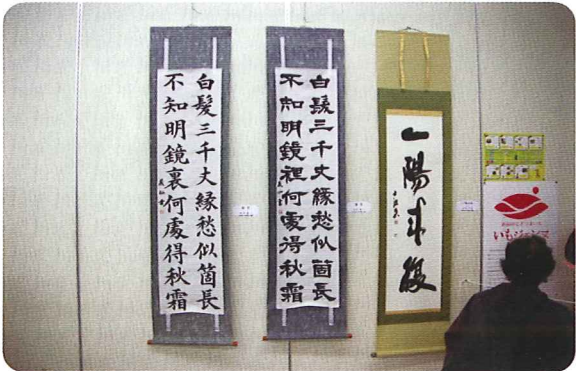 白髪三千丈縁愁似箇長
不知明鏡裏何處得秋霜
白髪三千丈縁愁似箇長
不知明鏡裡何處得秋霜
一陽来復
いもジェンヌ